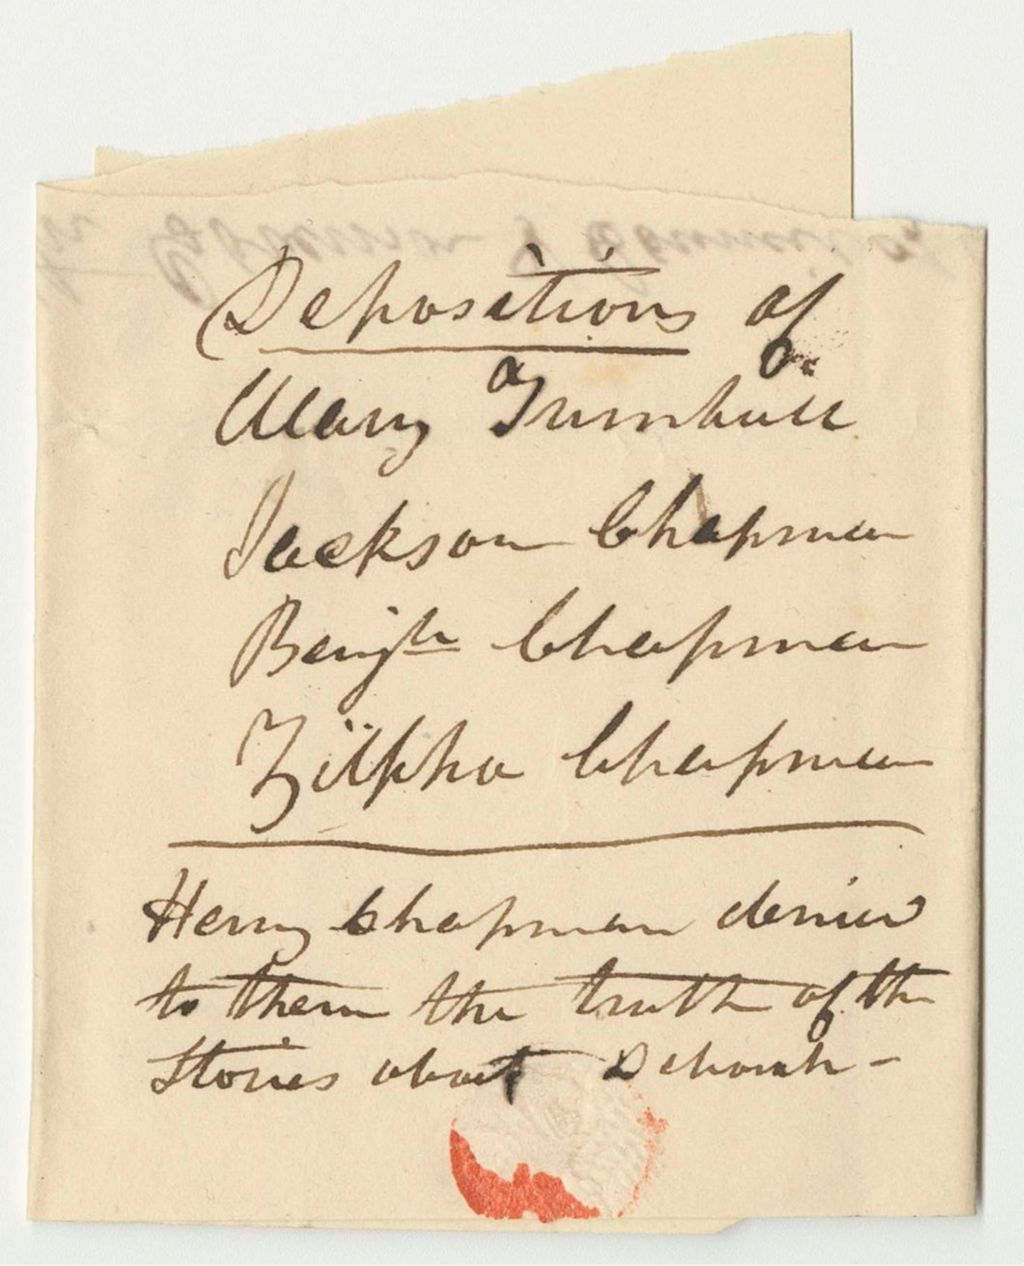 Depositions of
Mary Turnbull
Jackson Chapman
Benjn Chapman
Zilpha Chapman
Henry Chapman denies
to them the truth of the
Stories about Deborah -